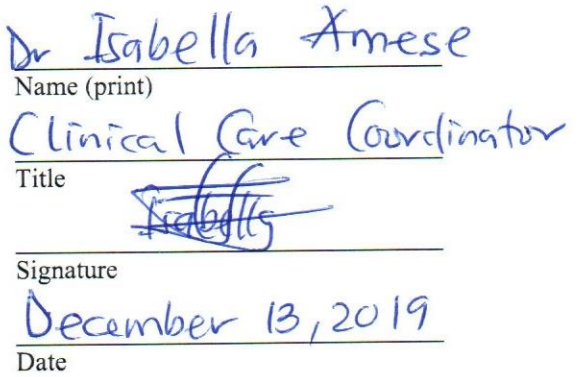 Dr Isabella Amese
Name (print)
Clinical Care Coordinator
Title
Isabella
Signature
December 13, 2019
Date